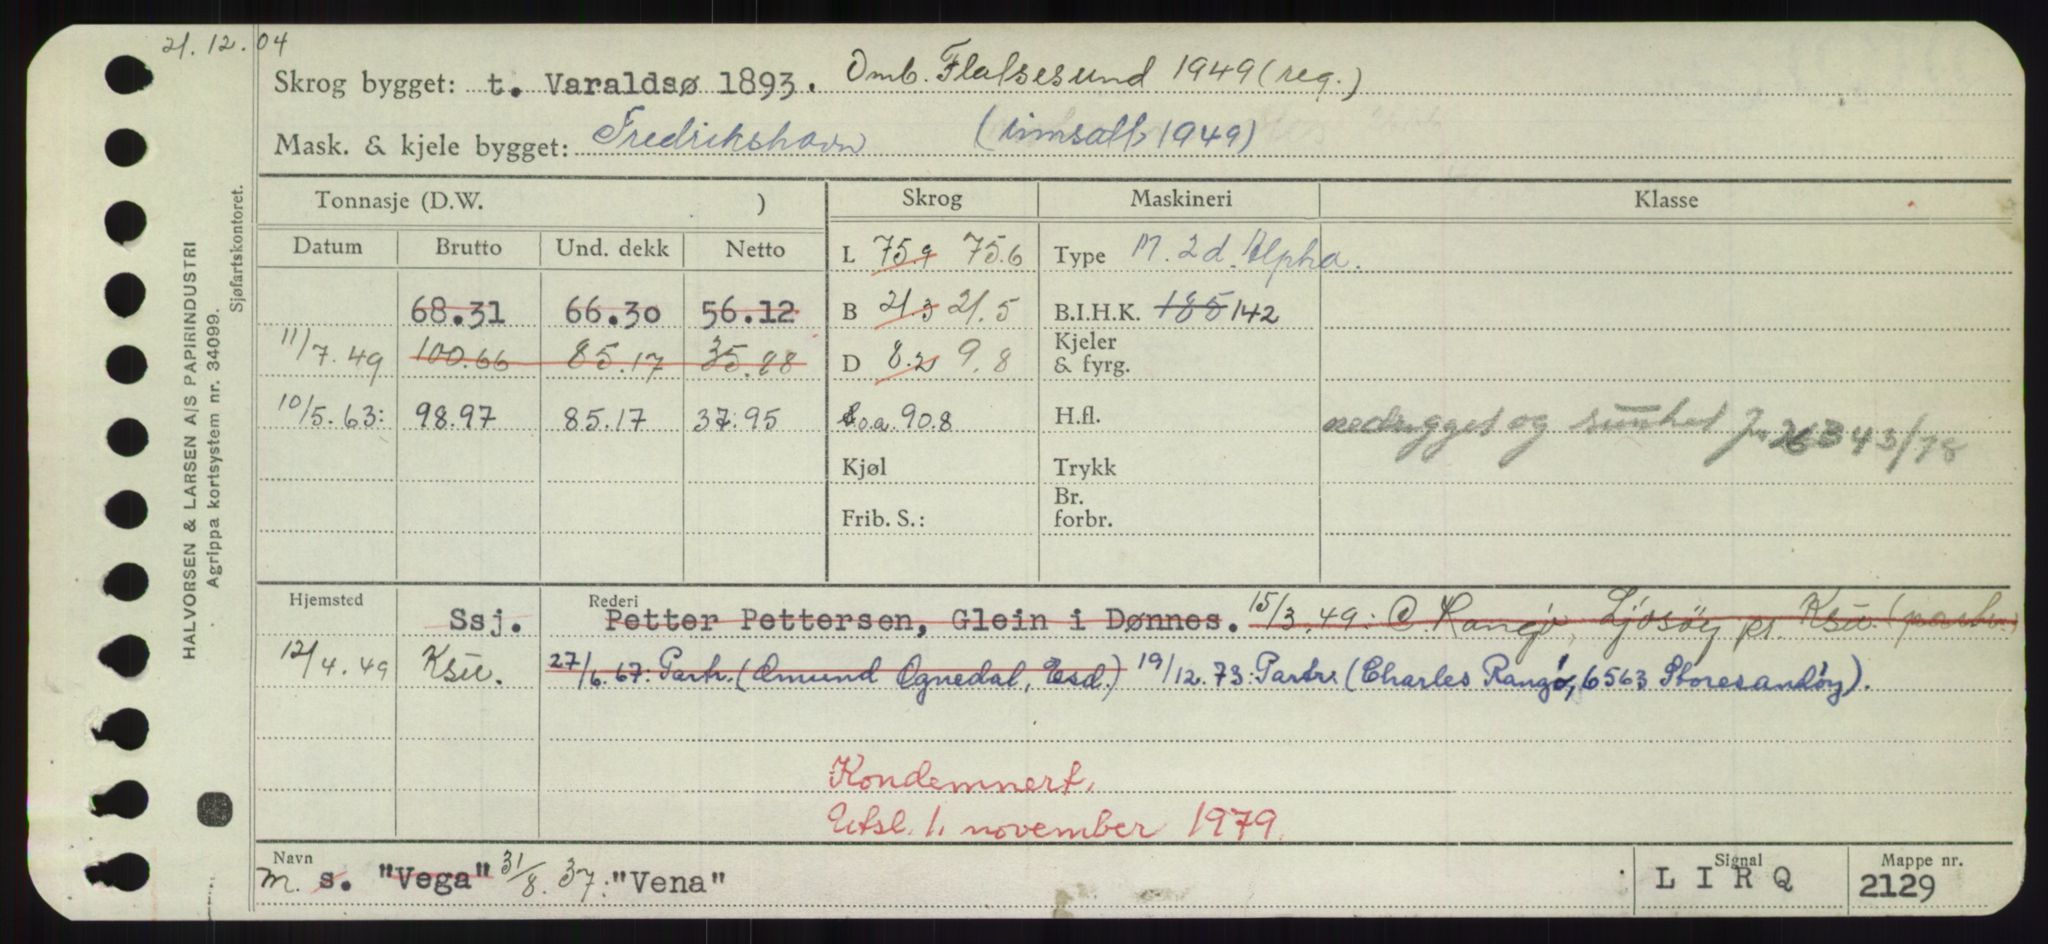 21.12.04
Skrog bygget: t. Varaldsø 1893. Omb. Flatsesund 1949 (reg.)
Mask. & kjele bygget: Fredrikshavn (innsatt 1949)
Tonnasje (D.W. ) Skrog Maskineri Klasse
Datum Brutto Und. dekk Netto L 75.9 75.6 Type M. 2d. Alpha.
68.31 66.30 56.12 B 21.3 21.5 B.I.H.K. 185 142
11/7.49 100.66 85.17 35.88 D 8.2 9.8 Kjeler & fyrg.
10/5.63: 98.97 85.17 37.95 L.o.a. 90.8 H.fl. nedrygget og 43/78
Kjøl Trykk
Frib. S.: Br. forbr.
Hjemsted Rederi
Ssj. Petter Pettersen, Glein i Dønnes. 15/3.49: O. Rangø, Ljøsøy pr. Ksu. (partr.)
12/4.49 Ksu. 27/6.67: Partr. (Omund Ognedal, Esd.) 19/12.73: Partr. (Charles Rangø, 6563 Storesandøy).
Kondemnert.
Utsl. 1. november 1979.
Navn Signal Mappe nr.
m. s. "Vega" 31/8.37: "Vena" L I R Q 2129
HALVORSEN & LARSEN A/S PAPIRINDUSTRI
Agrippa kortsystem nr. 34099.
Sjøfartskontoret.